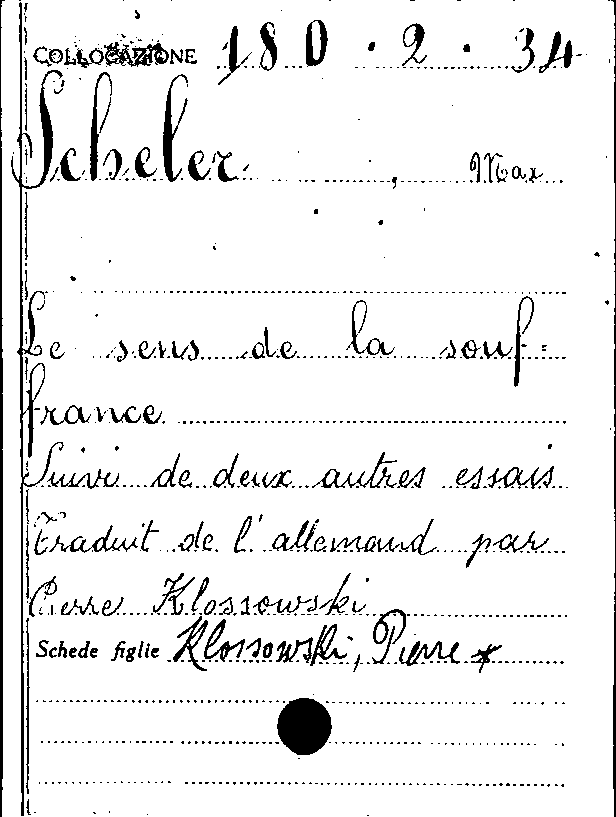 COLLOCAZIONE 180.2.34
Scheler, Max
Le sens de la souf=
france
Suivi de deux autres essais
Traduit de l'allemand par
Pierre Klossowski
Schede figlie Klossowski, Pierre *